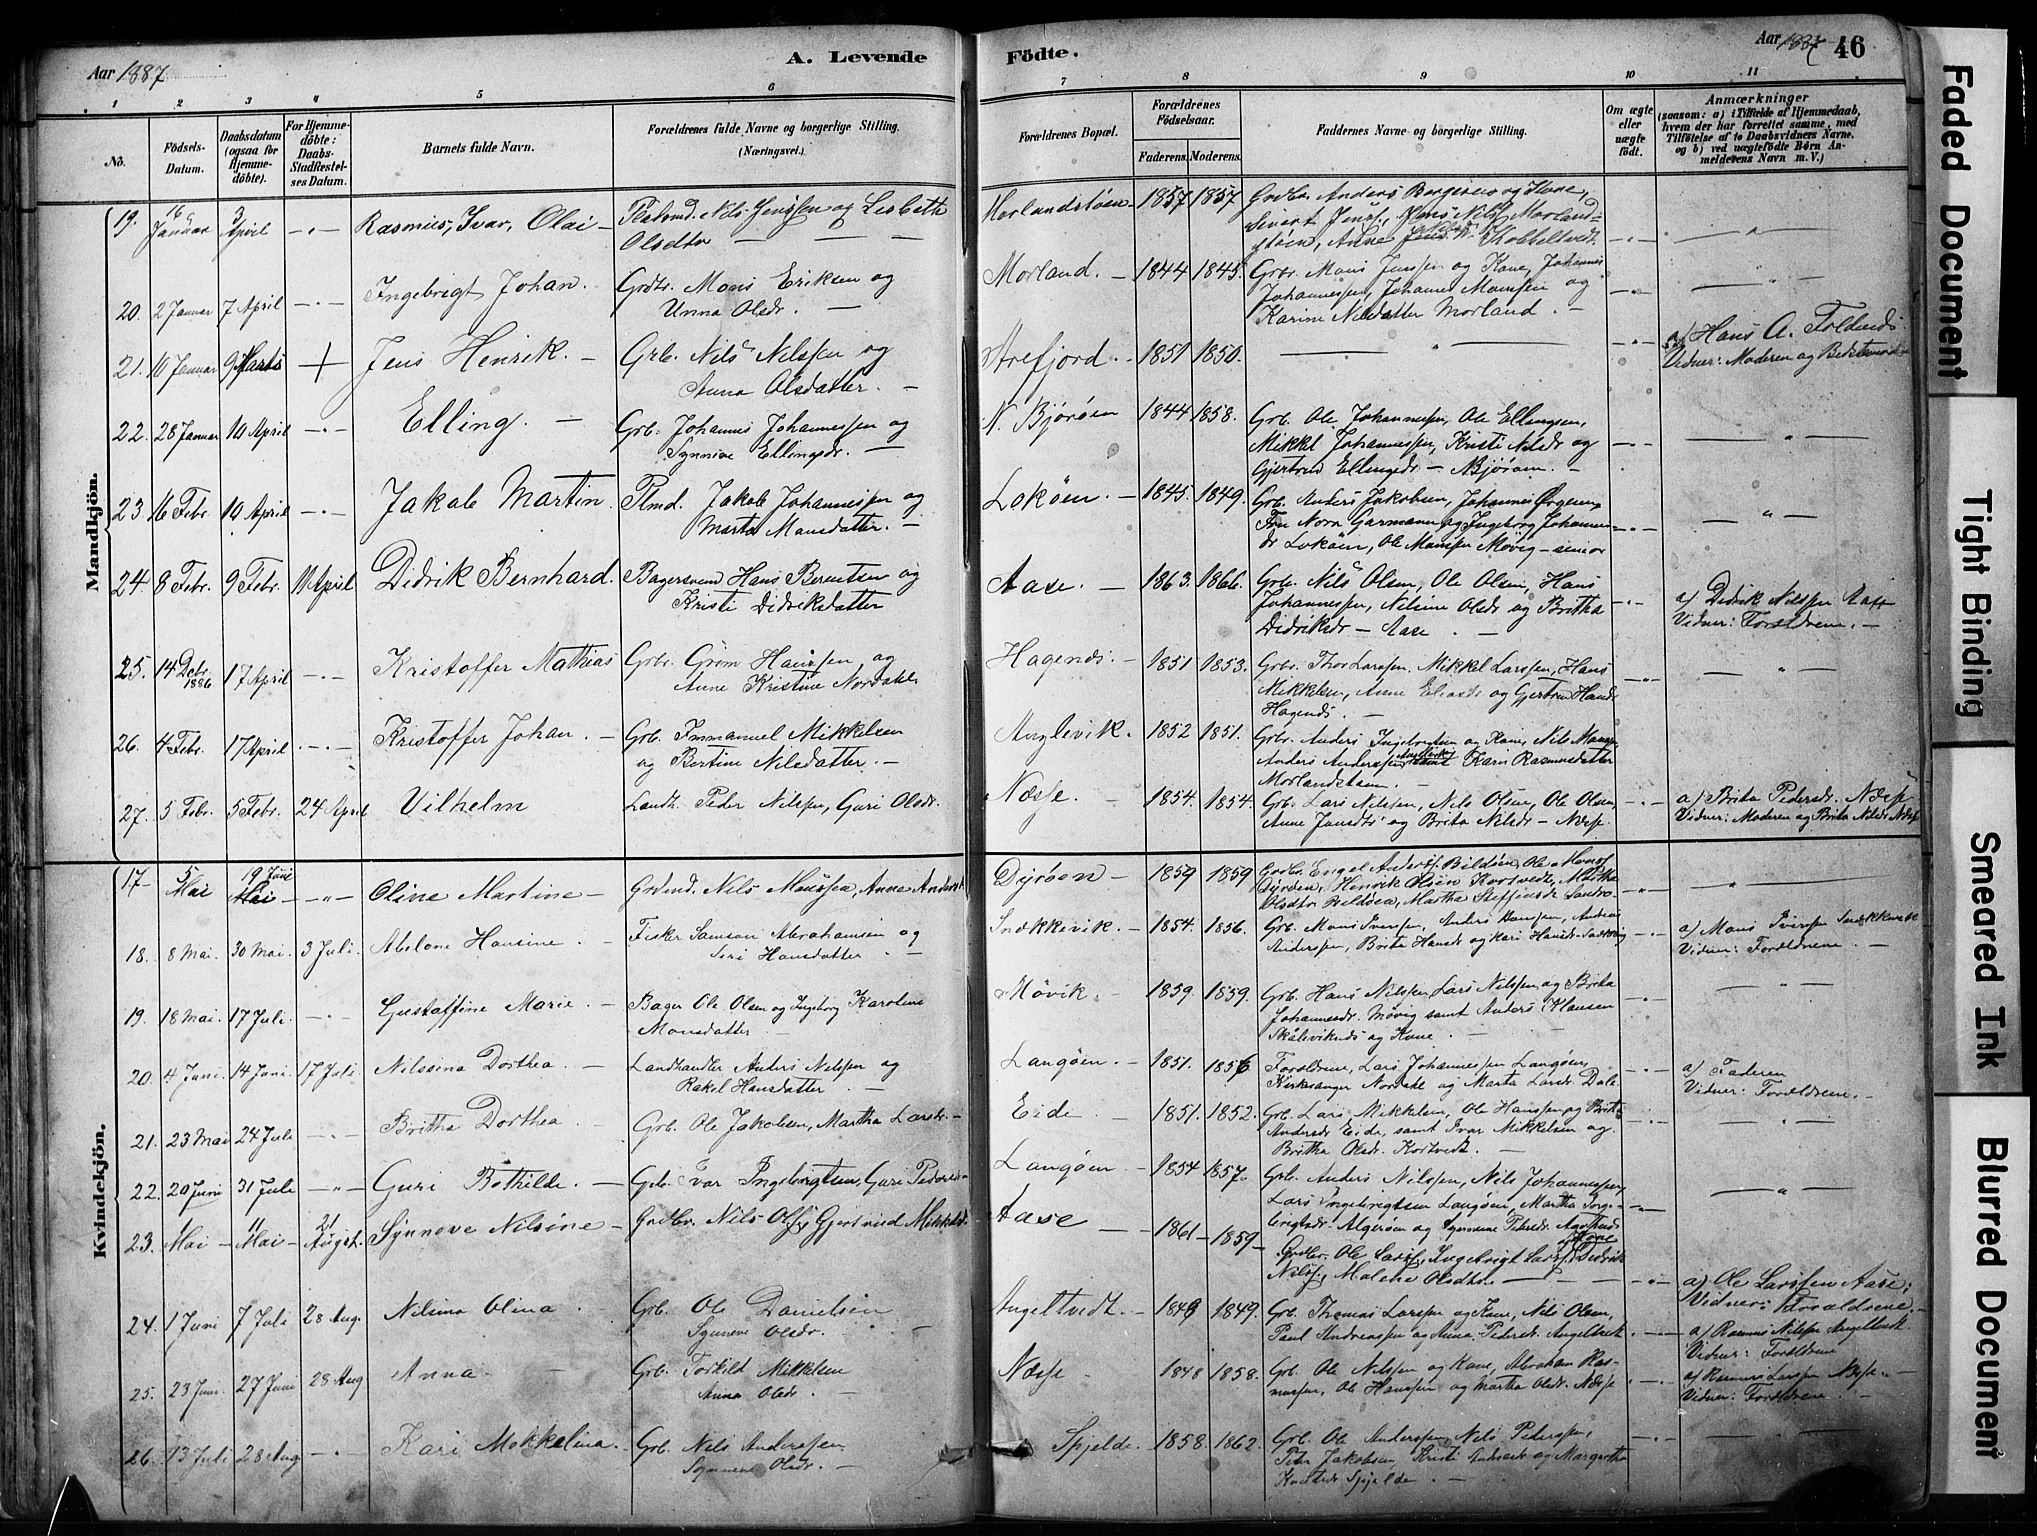 Aar 1887
A. Levende
Födte.
Aar 1887
46
1 2 3 4 5 6 7 8 9 10 11
No.
Födsels-
Datum.
Daabsdatum
(ogsaa for
Hjemme-
döbte).
For Hjemme-
döbte:
Daabs-
Stadfæstel-
ses Datum.
Barnets fulde Navn.
Forældrenes fulde Navne og borgerlige Stilling.
(Næringsvei.)
Forældrenes Bopæl.
Forældrenes
Födselsaar.
Faderens. Moderens.
Faddernes Navne og borgerlige Stilling.
Om ægte
eller
uægte
födt.
Anmærkninger
(saasom: a) i Tilfælde af Hjemmedaab,
hvem der har forrettet samme, med
Tilföielse af to Daabsvidners Navne.
og b) ved uægtefödte Börn An-
melderens Navn m. V.)
Mandkjön.
19. Januar 3 April Rasmus, Ivar, Olai Nils Jenssen og Lisbeth
Olsdtr
Morlandstøen 1857 1857 Grdbr. Anders Børgesen og Kone,
Sivert Jenss., Hans Nilss. Morland-
støen, Anne Kobbeltvedt
20. 2 Januar 7 April Ingebrigt Johan. Grdbr. Mons Eriksen og
Unna Olsdr.
Morland. 1844 1845. Grbr. Mons Jenssen og Kone, Johannes
Johannessen, Johannes Monssen og
Karine Nilsdatter Morland.
21. 10 Januar 9 Marts Jens Henrik. Grb. Nils Nilssen og
Anna Olsdatter.
Arefjord. 1851 1850. a) Hans A. Foldnæs.
Vidner: Moderen og Bedstemoder
22. 28 Januar 10 April Elling. Grb. Johannes Johannessen og
Synnive Ellingsdr.
N. Bjørøen 1844 1858. Grb. Ole Johannessen, Ole Ellingsen,
Mikkel Johannessen, Kristi Nilsdr og
Gjertrud Ellingsdr - N. Bjørøen.
23. 16 Febr. 10 April Jakob Martin. Plmd. Jakob Johannessen og
Marta Monsdatter.
Lokøen. 1845. 1849. Grb. Anders Jakobsen, Johannes Ørgersen,
Fru Nora Garmann og Ingeborg Johannes-
dr Lokøen, Ole Monssen Møvig - senior
24. 8 Febr. 9 Febr. 10 April Didrik Bernhard. Bagersvend Hans Berentsen og
Kristi Didriksdatter
Aase. 1863. 1866. Grb. Nils Olsen, Ole Olsen, Hans
Johannessen, Nilsine Olsdr og Britha
Didriksdr - Aase.
a) Didrik Nilssen Aase
Vidner: Forældrene.
25. 14 Debr 1886 17 April Kristoffer Mathias Grbr. Grim Hanssen og
Anne Kristine Nordahl
Hagenæs. 1851 1853. Grbr. Thor Larssen, Mikkel Larssen, Hans
Mikkelsen, Anne Eliasdr og Gjertrud Hansdr
Hagenæs.
26. 4 Febr. 17 April Kristoffer Johan. Grb. Immanuel Mikkelsen
og Bertine Nilsdatter.
Anglevik. 1852 1851. Grbr. Anders Ingebrigtsen og Kone, Nils Monss.,
Anders Anderssen Anglevik samt Karn Rasmusdatter
Morlandstøen.
27. 5 Febr. 5 Febr. 24 April Vilhelm Landh. Peder Nilssen, Guri Olsdr.
Næsse. 1854. 1854. Grb. Lars Nilssen, Nils Olsen, Ole Olsen,
Anne Jansdr og Brita Nilsdr - Næsse.
a) Brita Pedersdr. Næsse
Vidner: Moderen og Brita Nilsdr Næsse
Kvindekjön.
17 5 Mai 19 Juni Oline Martine Nils Monssen, Anne Andersd.
Dyrøen 1859 1859 Grdbr. Engel Anderss. Bildøen, Ole Monss.
Dyrøen, Henrik Olsen Kortvedt, Martha
Olsdtr Bildøen, Martha Steffensdr
18. 8 Mai. 30 Mai. 3 Juli. Abelone Hansine. Fisker Samson Abrahamsen og
Siri Hansdatter
Snekkevik. 1854. 1856. Grb. Mons Iverssen, Anders Hanssen, Andreas
Anderssen, Brita Hansdr og Kari Hansdr
a) Mons Iverssen Snekkevik
Vidner: Forældrene.
19. 18 Mai. 17 Juli. Gustaffine Marie. Bager Ole Olsen og Ingeborg Karoline
Monsdatter
Møvik. 1859. 1859. Grb. Hans Nilssen, Lars Nilssen og Brita
Johannesdr. Møvig samt Anders Klausen
Skålevikenæs og Kone.
20. 4 Juni. 14 Juni. 17 Juli. Nilssina Dorthea. Landhandler Anders Nilssen og
Rakel Hansdatter.
Langøen. 1851. 1856 Forældrene, Lars Johannessen Langøen,
Kirkesanger Nordahl og Marta Larsdr. Dale
a) Faderen
Vidner: Forældrene.
21. 23 Mai 24 Juli Britha Dorthea. Grb. Ole Jakobsen, Martha Larsdr.
Eide 1851. 1852. Grb. Lars Mikkelsen, Ole Hanssen og Britha
Andersdr Eide, samt Ivar Mikkelsen og
Britha Olsdr. Kortvedt.
22. 20 Juni 31 Juli Guri Bothilde. Grb. Ivar Ingebrigtsen, Guri Pedersdr
Langøen 1854 1857. Grb. Anders Nilssen, Nils Johannessen,
Lars Ingebrigtsen Langøen, Martha Inge-
brigtsdr. Algerøen og Synneve Pedersdr.
23. Mai 11 Mai 21 August. Synneve Nilsine Grdbr. Nils Olss. og Gjertrud Mikkelsd.
Aase 1861 1859 Grdbr. Ole Larss. og Kone, Ingebrigt Larss., Didrik
Nilss., Malene Olsdtr.
a) Ole Larssen Aase.
Vidner: Forældrene.
24. 1 Juni 7 Juli 28 Aug. Nilsina Olina. Grb. Ole Danielsen
Synneve Olsdr.
Angeltvedt. 1849 1849. Grb. Thomas Larssen og Kone, Nils Olsen,
Paul Andreassen og Anna Pedersdr. Angeltvedt
a) Rasmus Nilssen Angeltvedt
Vidner: Forældrene
25. 23 Juni. 27 Juni 28 Aug Anna. Grb. Torkild Mikkelsen
Anna Olsdr.
Næsse 1848 1858. Grb. Ole Nilssen og Kone, Abraham Ras-
mussen, Ole Hanssen og Martha Olsdr. Næsse
a) Rasmus Larssen Næsse.
Vidner: Forældrene.
26. 13 Juli 28 Aug Kari Mekkelina. Grb. Nils Anderssen
Synneve Olsdr.
Spjelde. 1858. 1862. Grb. Ole Anderssen, Nils Pederssen,
Peder Jakobsen, Kristi Andersdr og Margrethe
Knudsdr Spjelde.
Faded Document
Tight Binding
Smeared Ink
Blurred Document